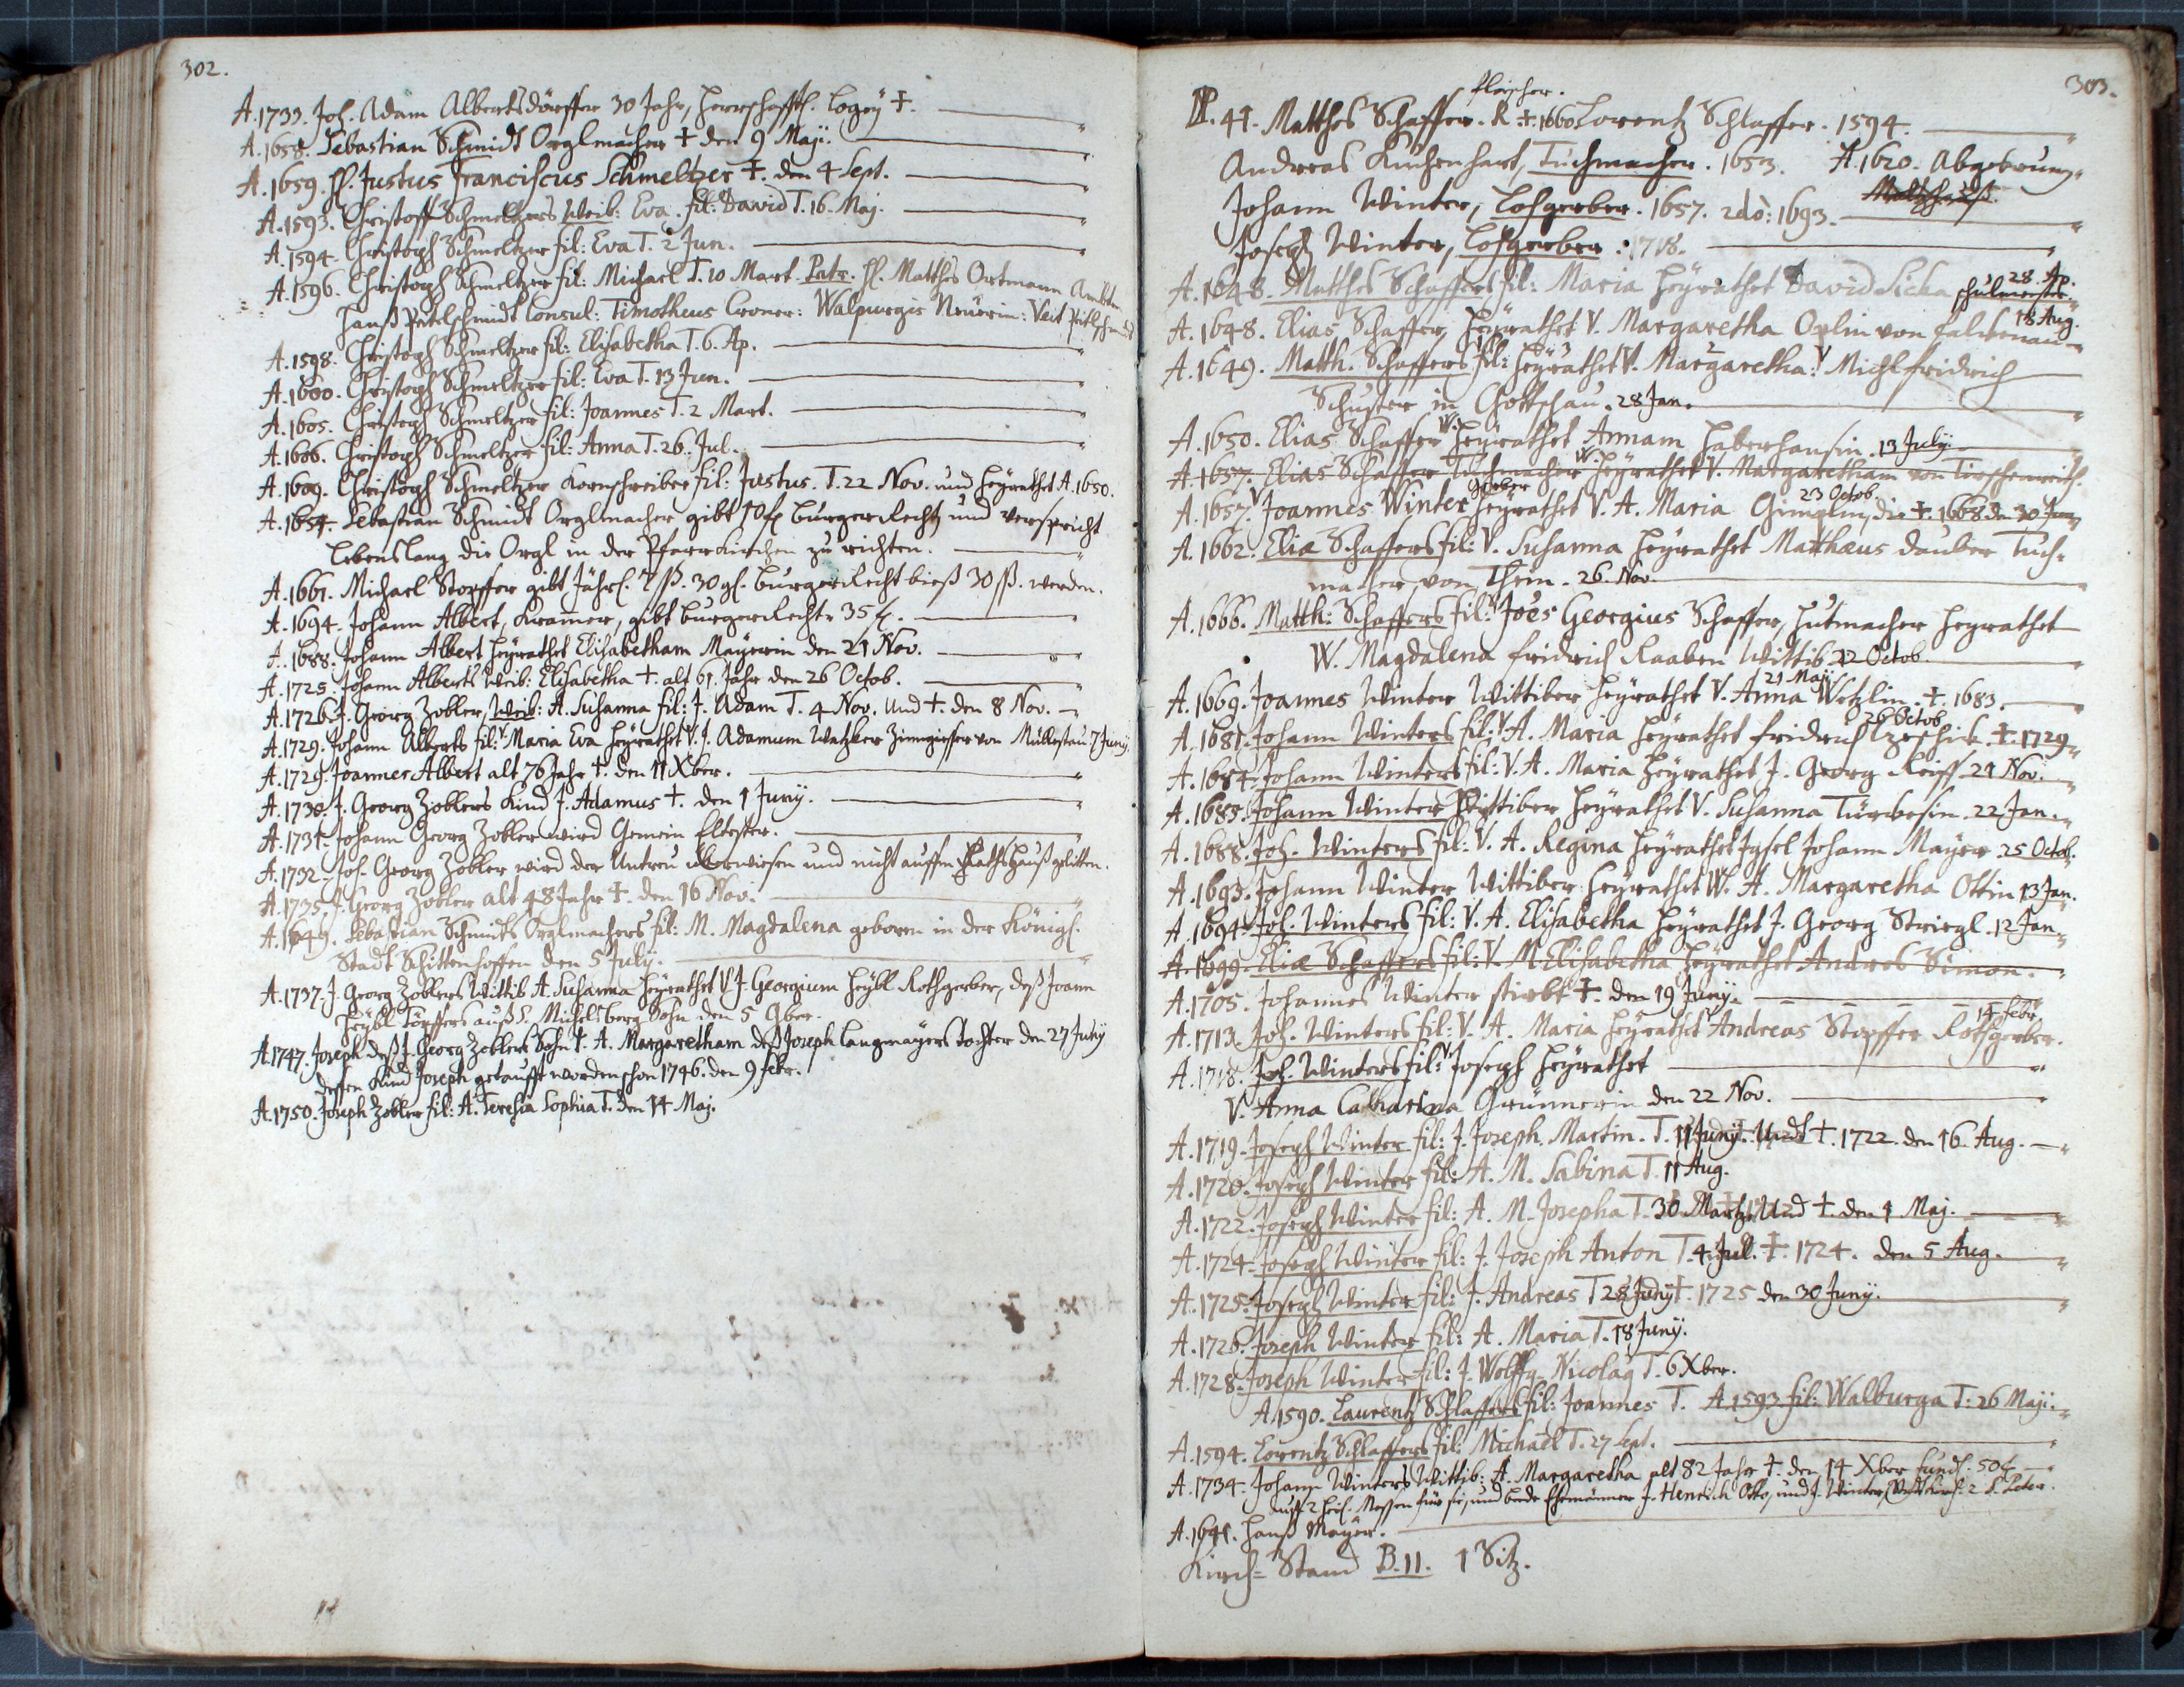 302.
A. 1733. Joh. Adam Albertsdörffer 30 Jahr, Herrschafftl. Logey †.
A. 1658. Sebastian Schmidt Orglmacher † den 9 Maji.
A. 1659. H. Justus Franciscus Schmeltzer †. den 4 Sept.
A. 1593. Christoff Schmeltzers Weib: Eva. fil: David T. 16. Maj.
A. 1594. Christoph Schmeltzer fil: Eva T. 2 Jun.
A. 1596. Christoph Schmeltzer fil: Michael T. 10 Mart. Patr. H. Matthes Ortmann
Hanß Petelschmidt Consul: Timotheus Croner: Walpurgis Neuerin: Veit Petlschmid
A. 1598. Christoph Schmeltzer fil: Elisabetha T. 6. Ap.
A. 1600. Christoph Schmeltzer fil: Eva T. 13 Jun.
A. 1605. Christoph Schmeltzer fil: Joannes T. 2 Mart.
A. 1606. Christoph Schmeltzer fil: Anna T. 26. Jul.
A. 1609. Christoph Schmeltzer Kornschreiber fil: Justus. T. 22 Nov. und heÿrathet A. 1650.
A. 1654. Sebastian Schmidt Orglmacher gibt 10 fl Burger Recht und verspricht
Lebenslang die Orgl in der Pfarrkirchen zu richten.
A. 1661. Michael Stopffer gibt Jährl. 7 ß. 30 gl. Burger Recht bieß 30 ß. werden.
A. 1694. Johann Albert, Kramer, gibt Burger Recht 35 fl.
A. 1688. Johann Albert heÿrathet Elisabetham Maÿrerin den 21 Nov.
A. 1725. Johann Alberts Weib: Elisabetha †. alt 61. Jahr den 26 Octob.
A. 1726. J. Georg Zobler, Weib: A. Susanna fil: J. Adam T. 4 Nov. und †. den 8 Nov.
A. 1729. Johann Alberts fil: V. Maria Eva heÿrathet V. J. Adamum Watzker Zinngiesser von Müllestau 7 Junÿ
A. 1729. Joannes Albert alt 76 Jahr †. den 11 Xber.
A. 1730. J. Georg Zoblers Kind J. Adamus †. den 1 Junÿ.
A. 1731. Johann Georg Zobler wird Gemein Eltester.
A. 1732. Joh. Georg Zobler wird der Untreu überwiesen und nicht auffm Rathshauß gelitten.
A. 1735. J. Georg Zobler alt 48 Jahr †. den 16 Nov.
A. 1649. Sebastian Schmidts Orglmachers fil: M. Magdalena geboren in der Königl.
Stadt Schittenhoffen den 5 Julÿ.
A. 1737. J. Georg Zoblers Wittib A. Susanna heÿrathet V. J. Georgium Heÿbl Rothgerber, deß Joann
Heÿbl Töpffers auß S. Michelsberg Sohn den 5 9ber.
A. 1747. Joseph deß J. Georg Zoblers Sohn †. A. Margaretham deß Joseph Langmaÿers tochter den 27 Junÿ
dessen Kind Joseph getaufft worden schon 1746. den 9 febr.
A. 1750. Joseph Zobler fil: A. Teresia Sophia T. den 14 Maj.
303.
Fleischer.
N. 44. Matthes Schaffer. R †. 1660. Lorentz Schlaffer. 1594.
Andreas Kuchenhart, Tuchmacher. 1653. A. 1620. Abgebrunn
Johann Winter, Lohgerber. 1657. 2do: 1693. Maltzhauß.
Joseph Winter, Lohgerber. 1718.
A. 1648. Matthes Schaffers fil: Maria heÿrathet David Sicka Schulmeister. 28. Ap.
A. 1648. Elias Schaffer, heÿrathet V. Margaretha Oplin von Falckenau 18 Aug.
A. 1649. Matth. Schaffers fil: heÿrathet V. Margaretha. Michl Fridrich
Schuster in Gottschau. 28 Jan.
A. 1650. Elias Schaffer W. heÿrathet Annam Haberhansin. 13 Julÿ.
A. 1657. Elias Schaffer Tuchmacher W. heÿrathet V. Margaretham von Tirschenreith.
A. 1657. Joannes Winter gerber heÿrathet V. A. Maria Gimplin, 23 Octob. die †. 1668 den 30 Jun
A. 1662. Eliæ Schaffers fil: V. Susanna heÿrathet Matthæus Dauber Tuch-
macher, von Thein. 26. Nov.
A. 1666. Matth: Schaffers fil: V. Joes Georgius Schaffer, Hutmacher heyrathet
W. Magdalena Fridrich Raaben Wittib 22 Octob.
A. 1669. Joannes Winter Wittiber heÿrathet V. Anna Wetzlin. 21 Maij †. 1683.
A. 1681. Johann Winters fil: V. A. Maria heÿrathet Fridrich Czeschick. 26 Octob. †. 1729
A. 1684. Johann Winters fil: V. A. Maria heÿrathet J. Georg Reiff 21 Nov.
A. 1685. Johann Winter Wittiber heÿrathet V. Susanna Türbesin. 22 Jan.
A. 1688. Joh. Winters fil: V. A. Regina heÿrathet Igsel Johann Mayer. 25 Octob.
A. 1693. Johann Winter Wittiber heÿrathet W. A. Margaretha Ottin 13 Jan.
A. 1694. Joh. Winters fil: V. A. Elisabetha heÿrathet J. Georg Striegl. 12 Jan
A. 1699. Eliæ Schaffers fil: V. M. Elisabetha heÿrathet Andres Simon.
A. 1705. Johannes Winter stirbt †. den 19 Junÿ.
A. 1713. Joh. Winters fil: V. A. Maria heÿrathet V. Andreas Stopffer Rothgerber. 14 febr.
A. 1718. Joh. Winters fil: V. Joseph heÿrathet
V. Anna Catharina Grünnerin den 22 Nov.
A. 1719. Joseph Winter fil: J. Joseph. Martin. T. 11 Junÿ. Und †. 1722. den 16. Aug.
A. 1720. Joseph Winter fil: A. M. Sabina T. 11 Aug.
A. 1722. Joseph Winter fil: A. M. Josepha T. 30 Martz. Und †. den 1 Maj.
A. 1724. Joseph Winter fil: J. Joseph Anton T. 4. Jul. †. 1724. den 5 Aug.
A. 1725. Joseph Winter fil: J. Andreas T 28 Junÿ †. 1725 den 30 Junÿ.
A. 1726. Joseph Winter fil: A. Maria T. 18 Junÿ.
A. 1728. Joseph Winter fil: J. Wolffg. Nicolag T. 6 Xber.
A. 1590. Laurentz Schlaffers fil: Joannes T. A. 1593 fil: Walburga T: 26 Maji.
A. 1594. Lorentz Schlaffers fil: Michael T. 27 Sept.
A. 1734. Johann Winters Wittib: A. Margaretha alt 82 Jahr †. den 14 Xber fundi: 50 fl
auff 2 Heil. Messen für sie, und beede Ehemänner J. Henrich Otto, und J. Winter, 2 S. Peter.
A. 1641. Hanß Maÿer.
Kirch-Stand B. 11. 1 Sitz.